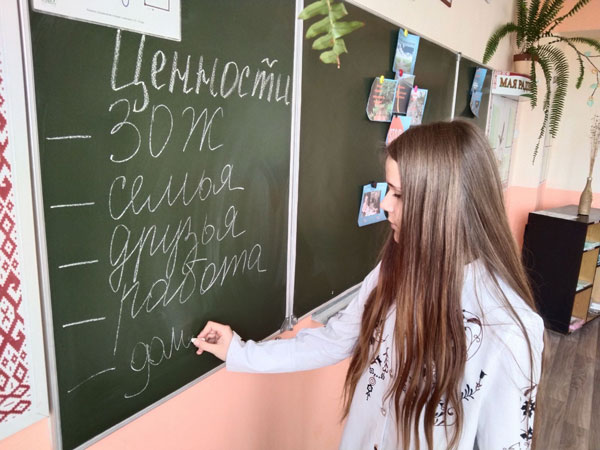 Ценности
– ЗОЖ
– семья
– друзья
– работа
– дом
МАЯ РАД